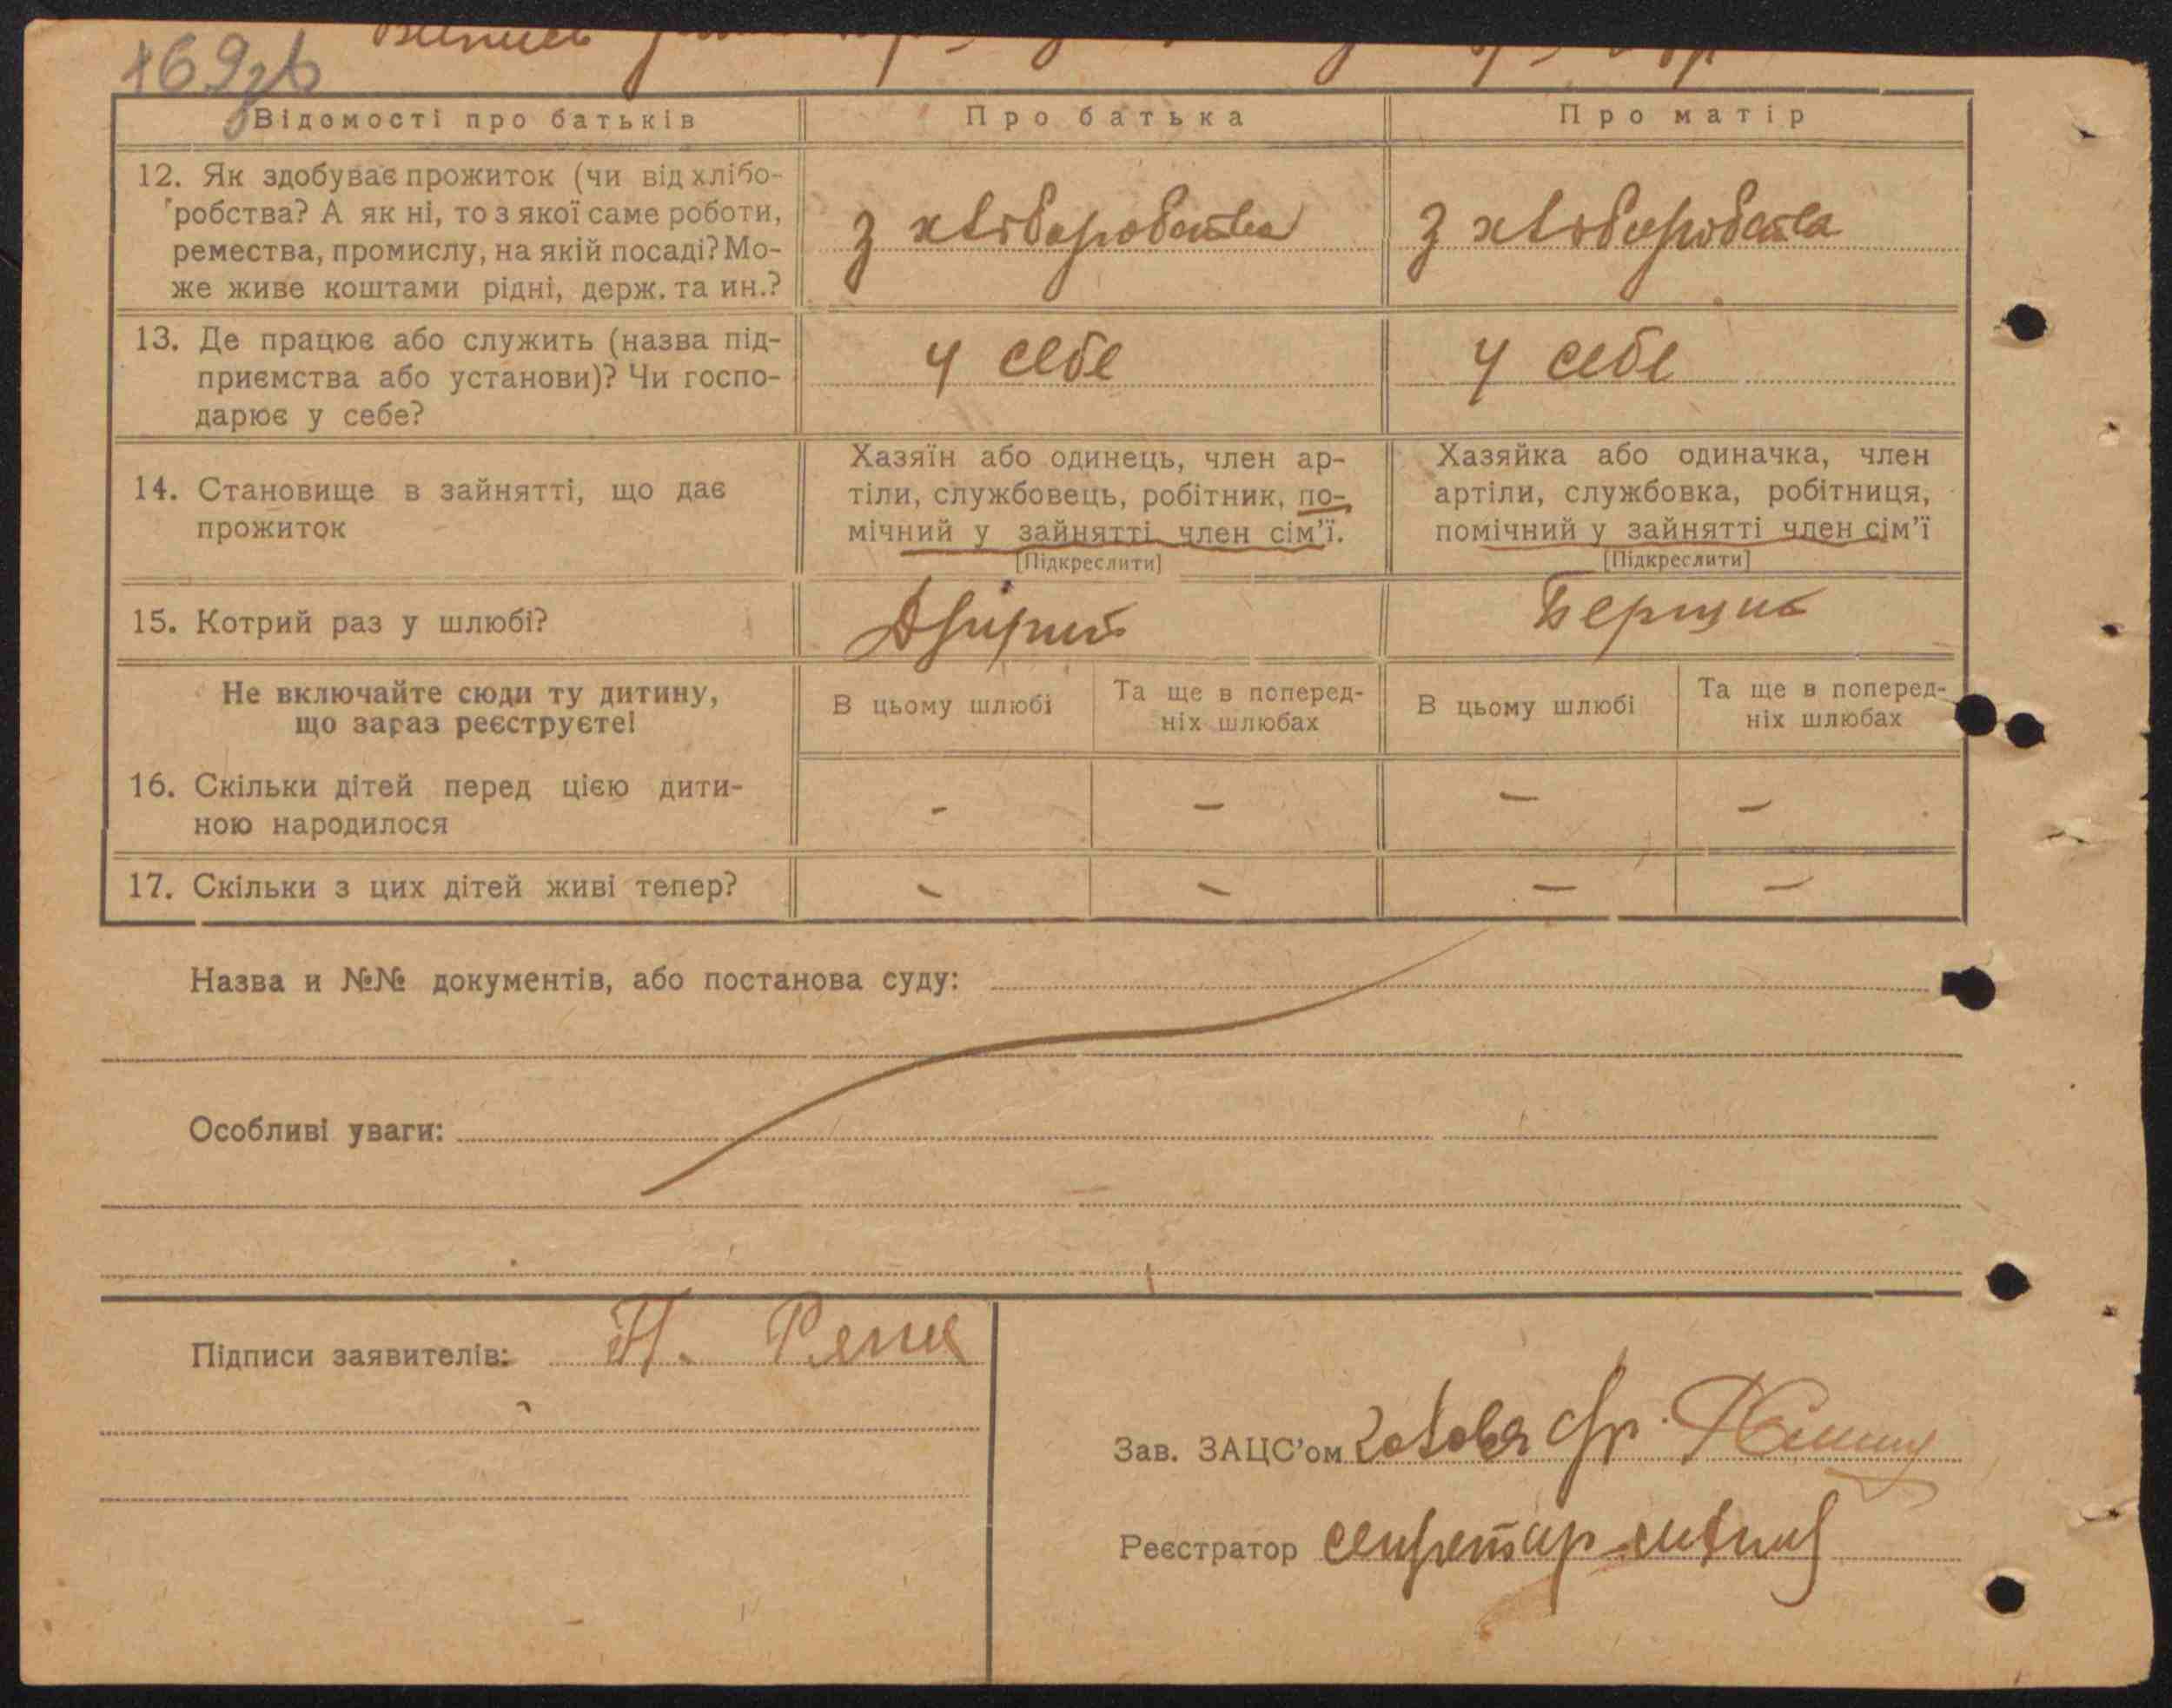 169зв
Відомості про батьків
Про батька
Про матір
12. Як здобуває прожиток (чи від хлібо-
робства? А як ні, то з якої саме роботи,
ремества, промислу, на якій посаді? Мо-
же живе коштами рідні, держ. та ин.?
з хліборобства
з хліборобства
13. Де працює або служить (назва під-
приємства або установи)? Чи госпо-
дарює у себе?
у себе
у себе
14. Становище в зайнятті, що дає
прожиток
Хазяїн або одинець, член ар-
тіли, службовець, робітник, по-
мічний у зайнятті член сім'ї.
[Підкреслити]
Хазяйка або одиначка, член
артіли, службовка, робітниця,
помічний у зайнятті член сім'ї
[Підкреслити]
15. Котрий раз у шлюбі?
Не включайте сюди ту дитину,
що зараз реєструєте!
В цьому шлюбі
Та ще в поперед-
ніх шлюбах
В цьому шлюбі
Та ще в поперед-
ніх шлюбах
16. Скільки дітей перед цією дити-
ною народилося
- - - -
17. Скільки з цих дітей живі тепер?
- - - -
Назва и №№ документів, або постанова суду:
Особливі уваги:
Підписи заявителів:
Зав. ЗАЦС'ом голова
Реєстратор секретар